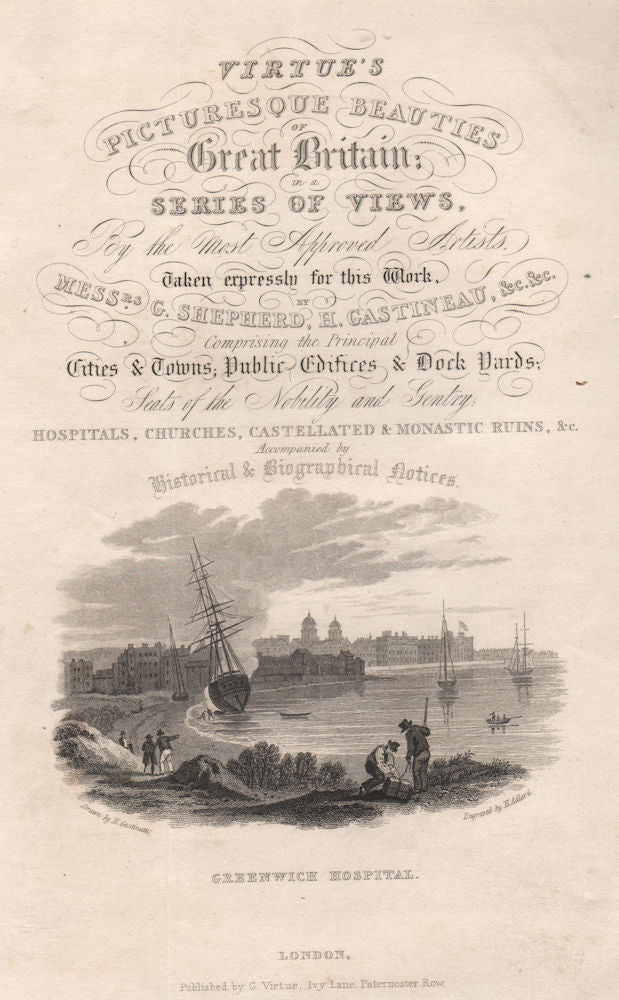 VIRTUE'S
PICTURESQUE BEAUTIES
OF
Great Britain;
in a
SERIES OF VIEWS,
By the Most Approved Artists,
Taken expressly for this Work,
BY
MESSRS G. SHEPHERD, H. GASTINEAU, &c. &c.
Comprising the Principal
Cities & Towns; Public Edifices & Dock Yards;
Seats of the Nobility and Gentry;
HOSPITALS, CHURCHES, CASTELLATED & MONASTIC RUINS, &c.
Accompanied by
Historical & Biographical Notices.
Drawn by H. Gastineau.
Engraved by H. Adlard.
GREENWICH HOSPITAL.
LONDON,
Published by G. Virtue, Ivy Lane, Paternoster Row.